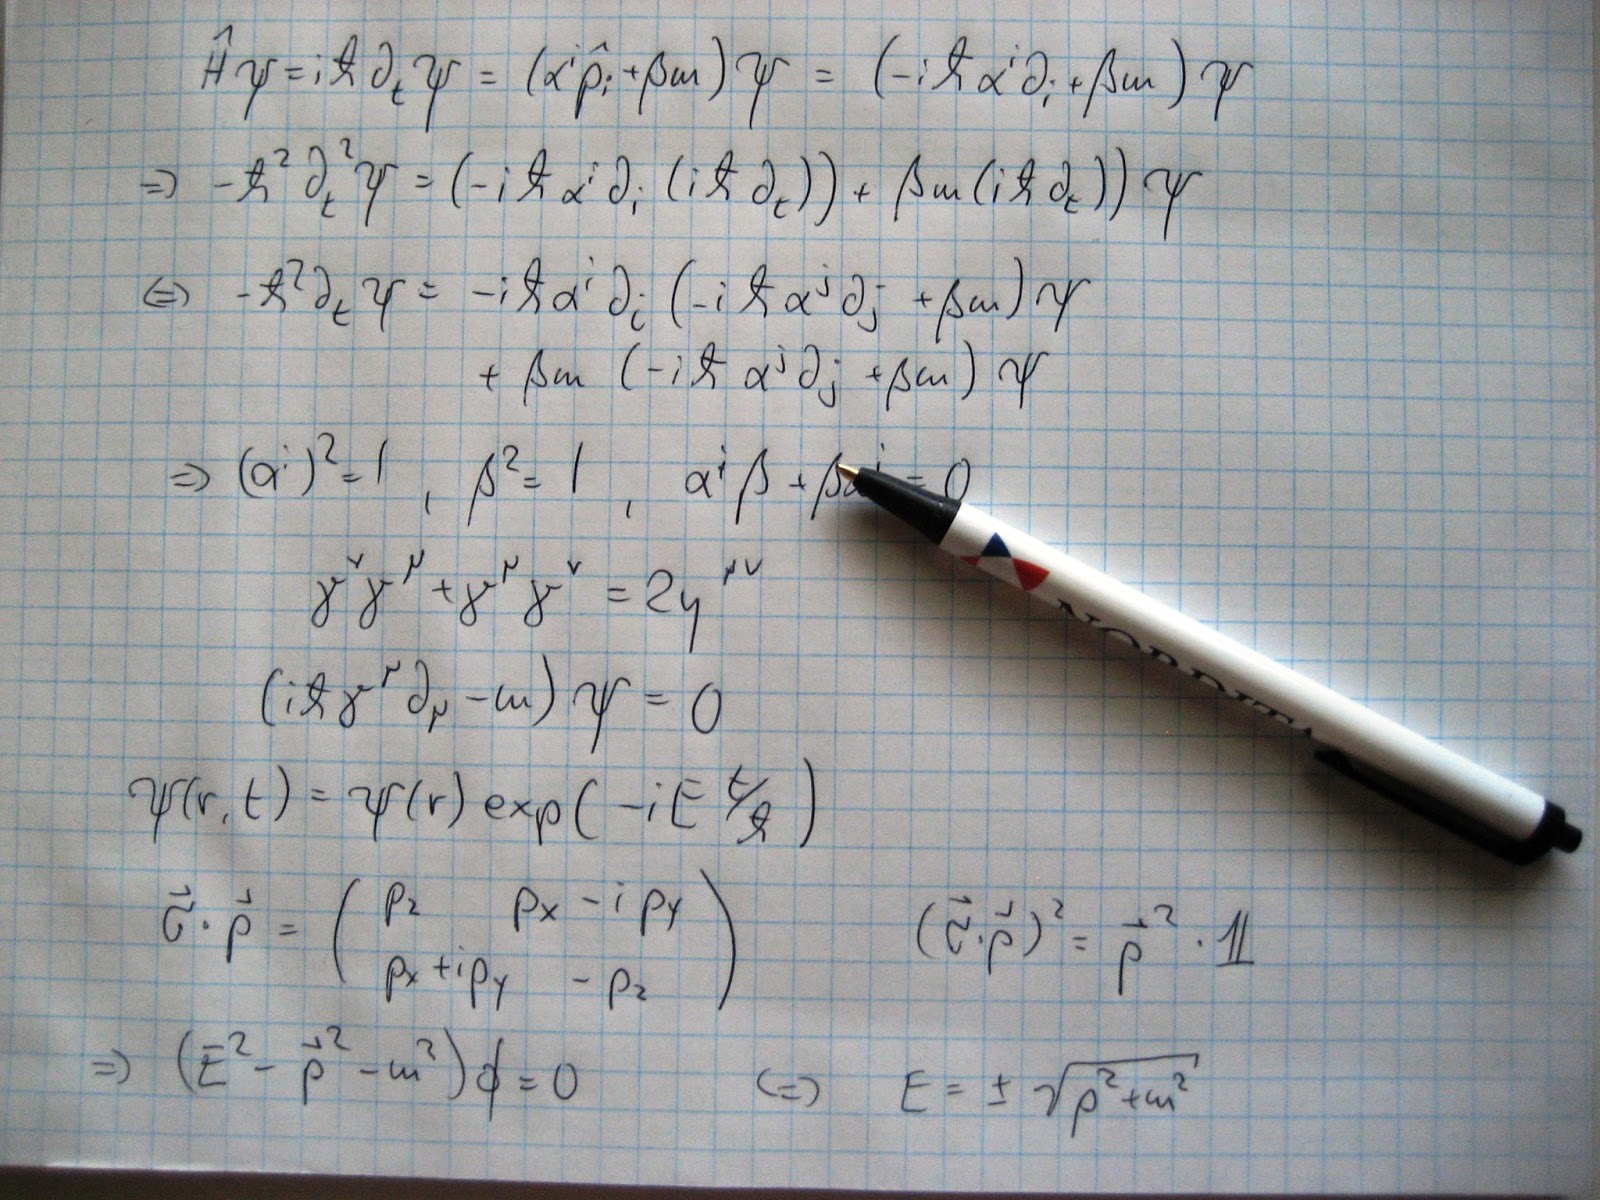 Ĥψ = iħ∂ₜψ = (αⁱp̂ᵢ + βm)ψ = (-iħαⁱ∂ᵢ + βm)ψ
⇒ -ħ²∂ₜ²ψ = (-iħαⁱ∂ᵢ(iħ∂ₜ)) + βm(iħ∂ₜ))ψ
⇔ -ħ²∂ₜψ = -iħαⁱ∂ᵢ(-iħαʲ∂ⱼ + βm)ψ
+ βm(-iħαʲ∂ⱼ + βm)ψ
⇒ (αⁱ)² = 1, β² = 1, αⁱβ + βαⁱ = 0
γ^ν γ^μ + γ^μ γ^ν = 2η^μν
(iħγ^μ∂_μ - m)ψ = 0
ψ(r,t) = ψ(r) exp(-iE t/ħ)
σ⃗·p⃗ = ( p_z p_x - i p_y
p_x + i p_y - p_z ) (σ⃗·p⃗)² = p⃗²·𝟙
⇒ (E² - p⃗² - m²)ϕ = 0 ⇔ E = ± √(p² + m²)
NORDITA